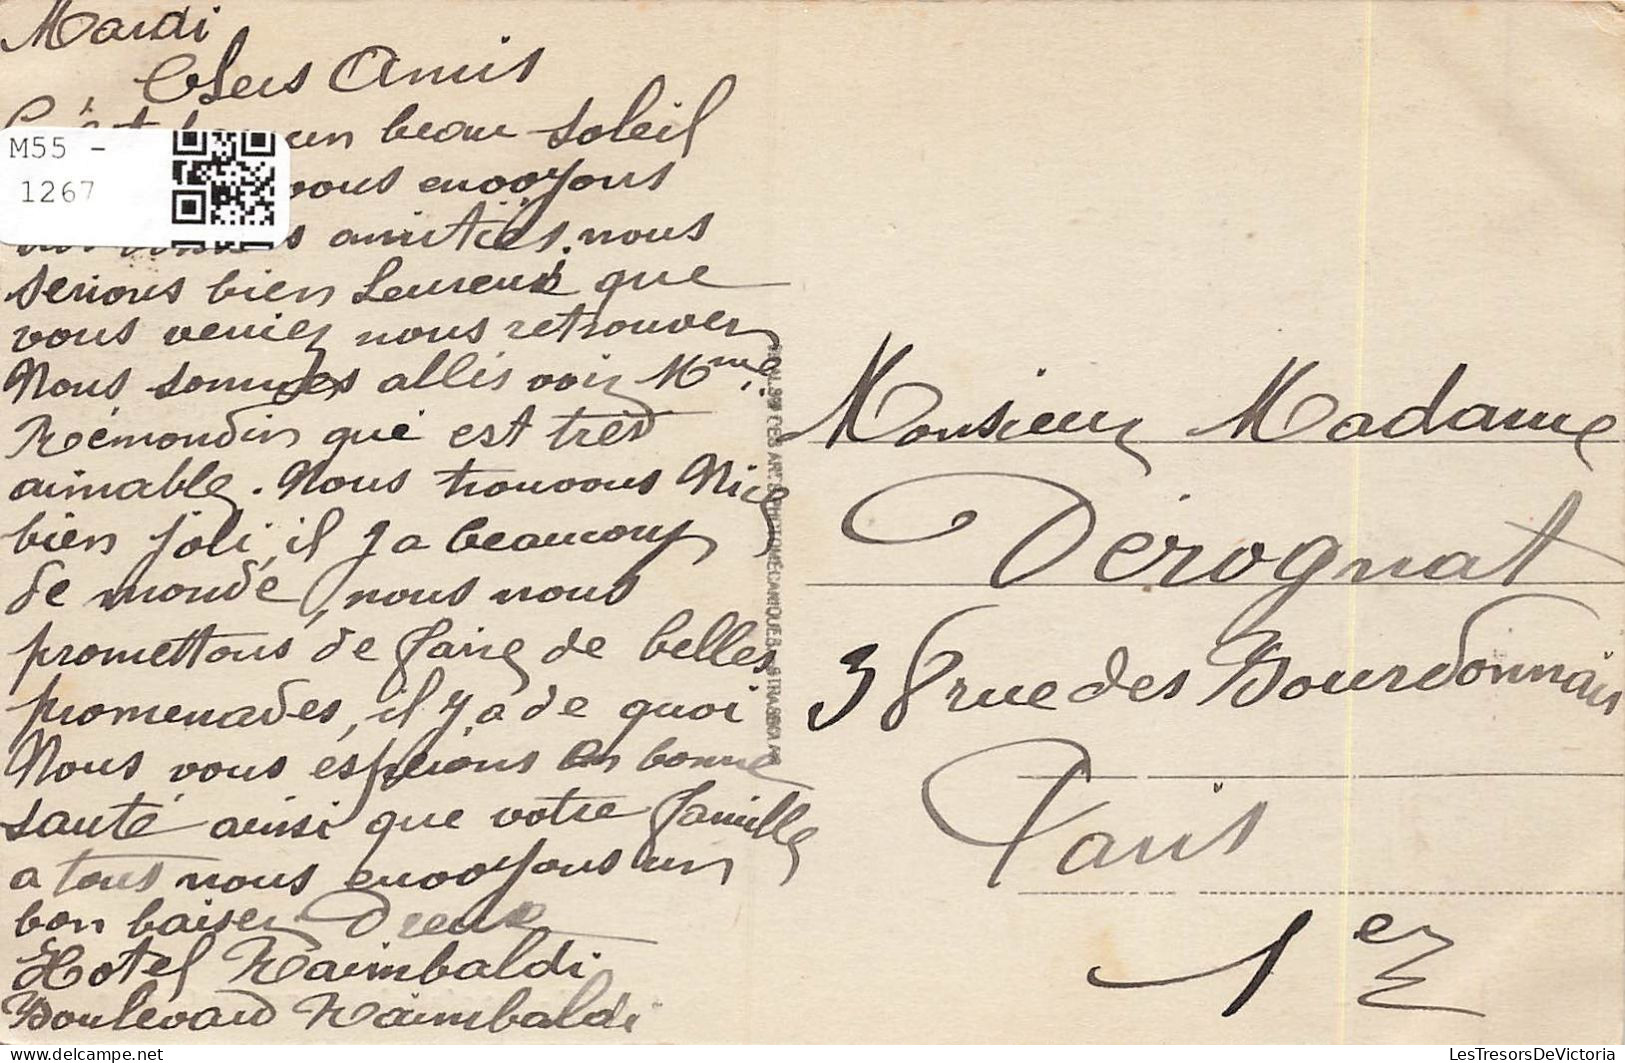 Mardi
Chers Amis
un beau soleil
M55 -
1267
vous envoyons
amitiés, nous
serions bien heureux que
vous veniez nous retrouver
Nous sommes allés voir Mme
Rémondin qui est très
aimable. Nous trouvons Nice
bien joli, il y a beaucoup
de monde, nous nous
promettons de faire de belles
promenades, il y a de quoi
Nous vous espérons en bonne
santé ainsi que votre famille
a tous nous envoyons un
bon baiser Dreux
Hotel Raimbaldi
Boulevard Raimbaldi
DES ARTS PHOTOMÉCANIQUES
Monsieur Madame
Dérognat
38 rue des Bourdonnais
Paris
1er
delcampe.net
LesTresorsDeVictoria